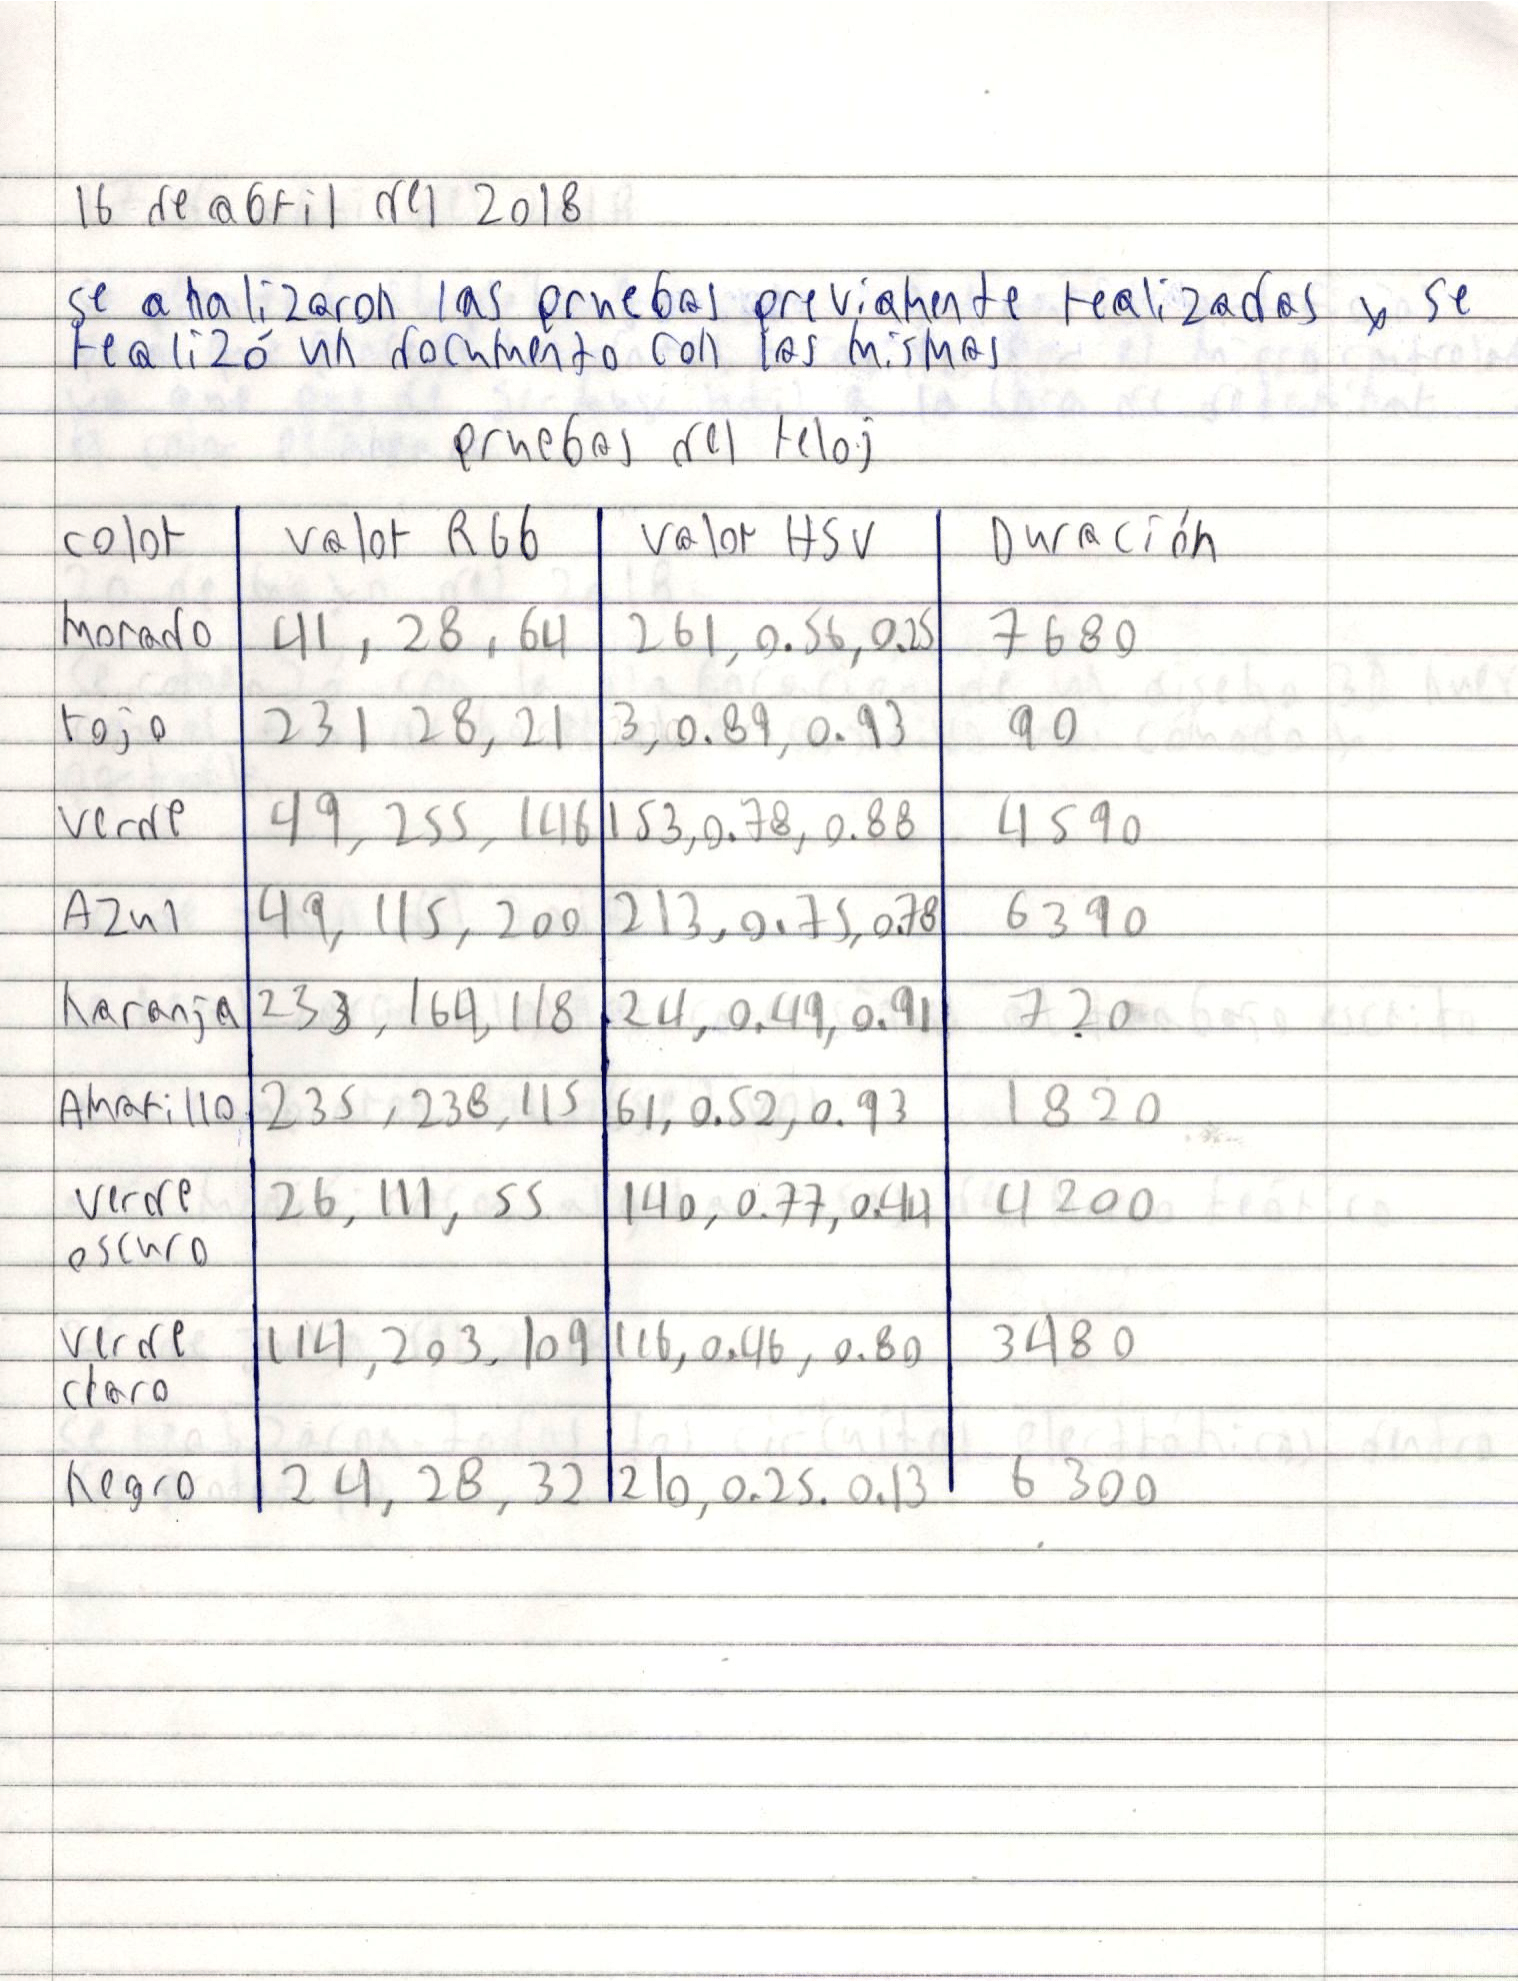 16 de abril del 2018
se analizaron las pruebas previamente realizadas y se
realizó un documento con las mismas
pruebas del reloj
color valor RGB valor HSV Duración
morado 41, 28, 64 261, 0.56, 0.25 7680
rojo 231 28, 21 3, 0.89, 0.93 90
verde 49, 255, 146 153, 0.78, 0.88 4590
Azul 49, 115, 200 213, 0.75, 0.78 6390
naranja 233, 164, 118 24, 0.49, 0.91 720
Amarillo 235, 238, 115 61, 0.52, 0.93 1820
verde 26, 111, 55 140, 0.77, 0.44 4200
oscuro
verde 114, 203, 109 116, 0.46, 0.80 3480
claro
negro 24, 28, 32 210, 0.25. 0.13 6300